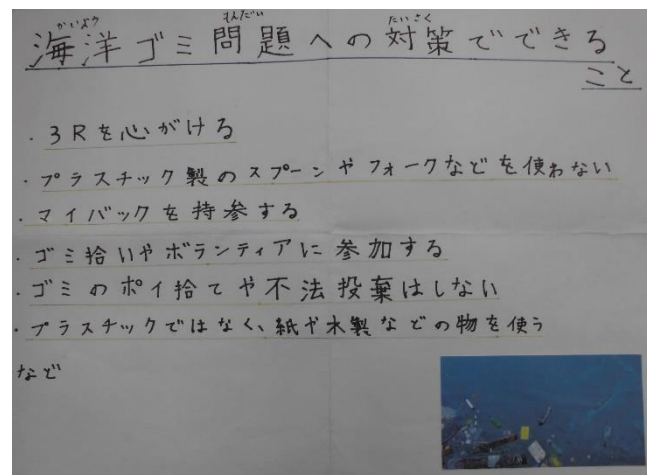 かいよう もんだい たいさく
海洋ゴミ問題への対策でできる
こと
・3Rを心がける
・プラスチック製のスプーンやフォークなどを使わない
・マイバックを持参する
・ゴミ拾いやボランティアに参加する
・ゴミのポイ捨てや不法投棄はしない
・プラスチックではなく、紙や木製などの物を使う
など